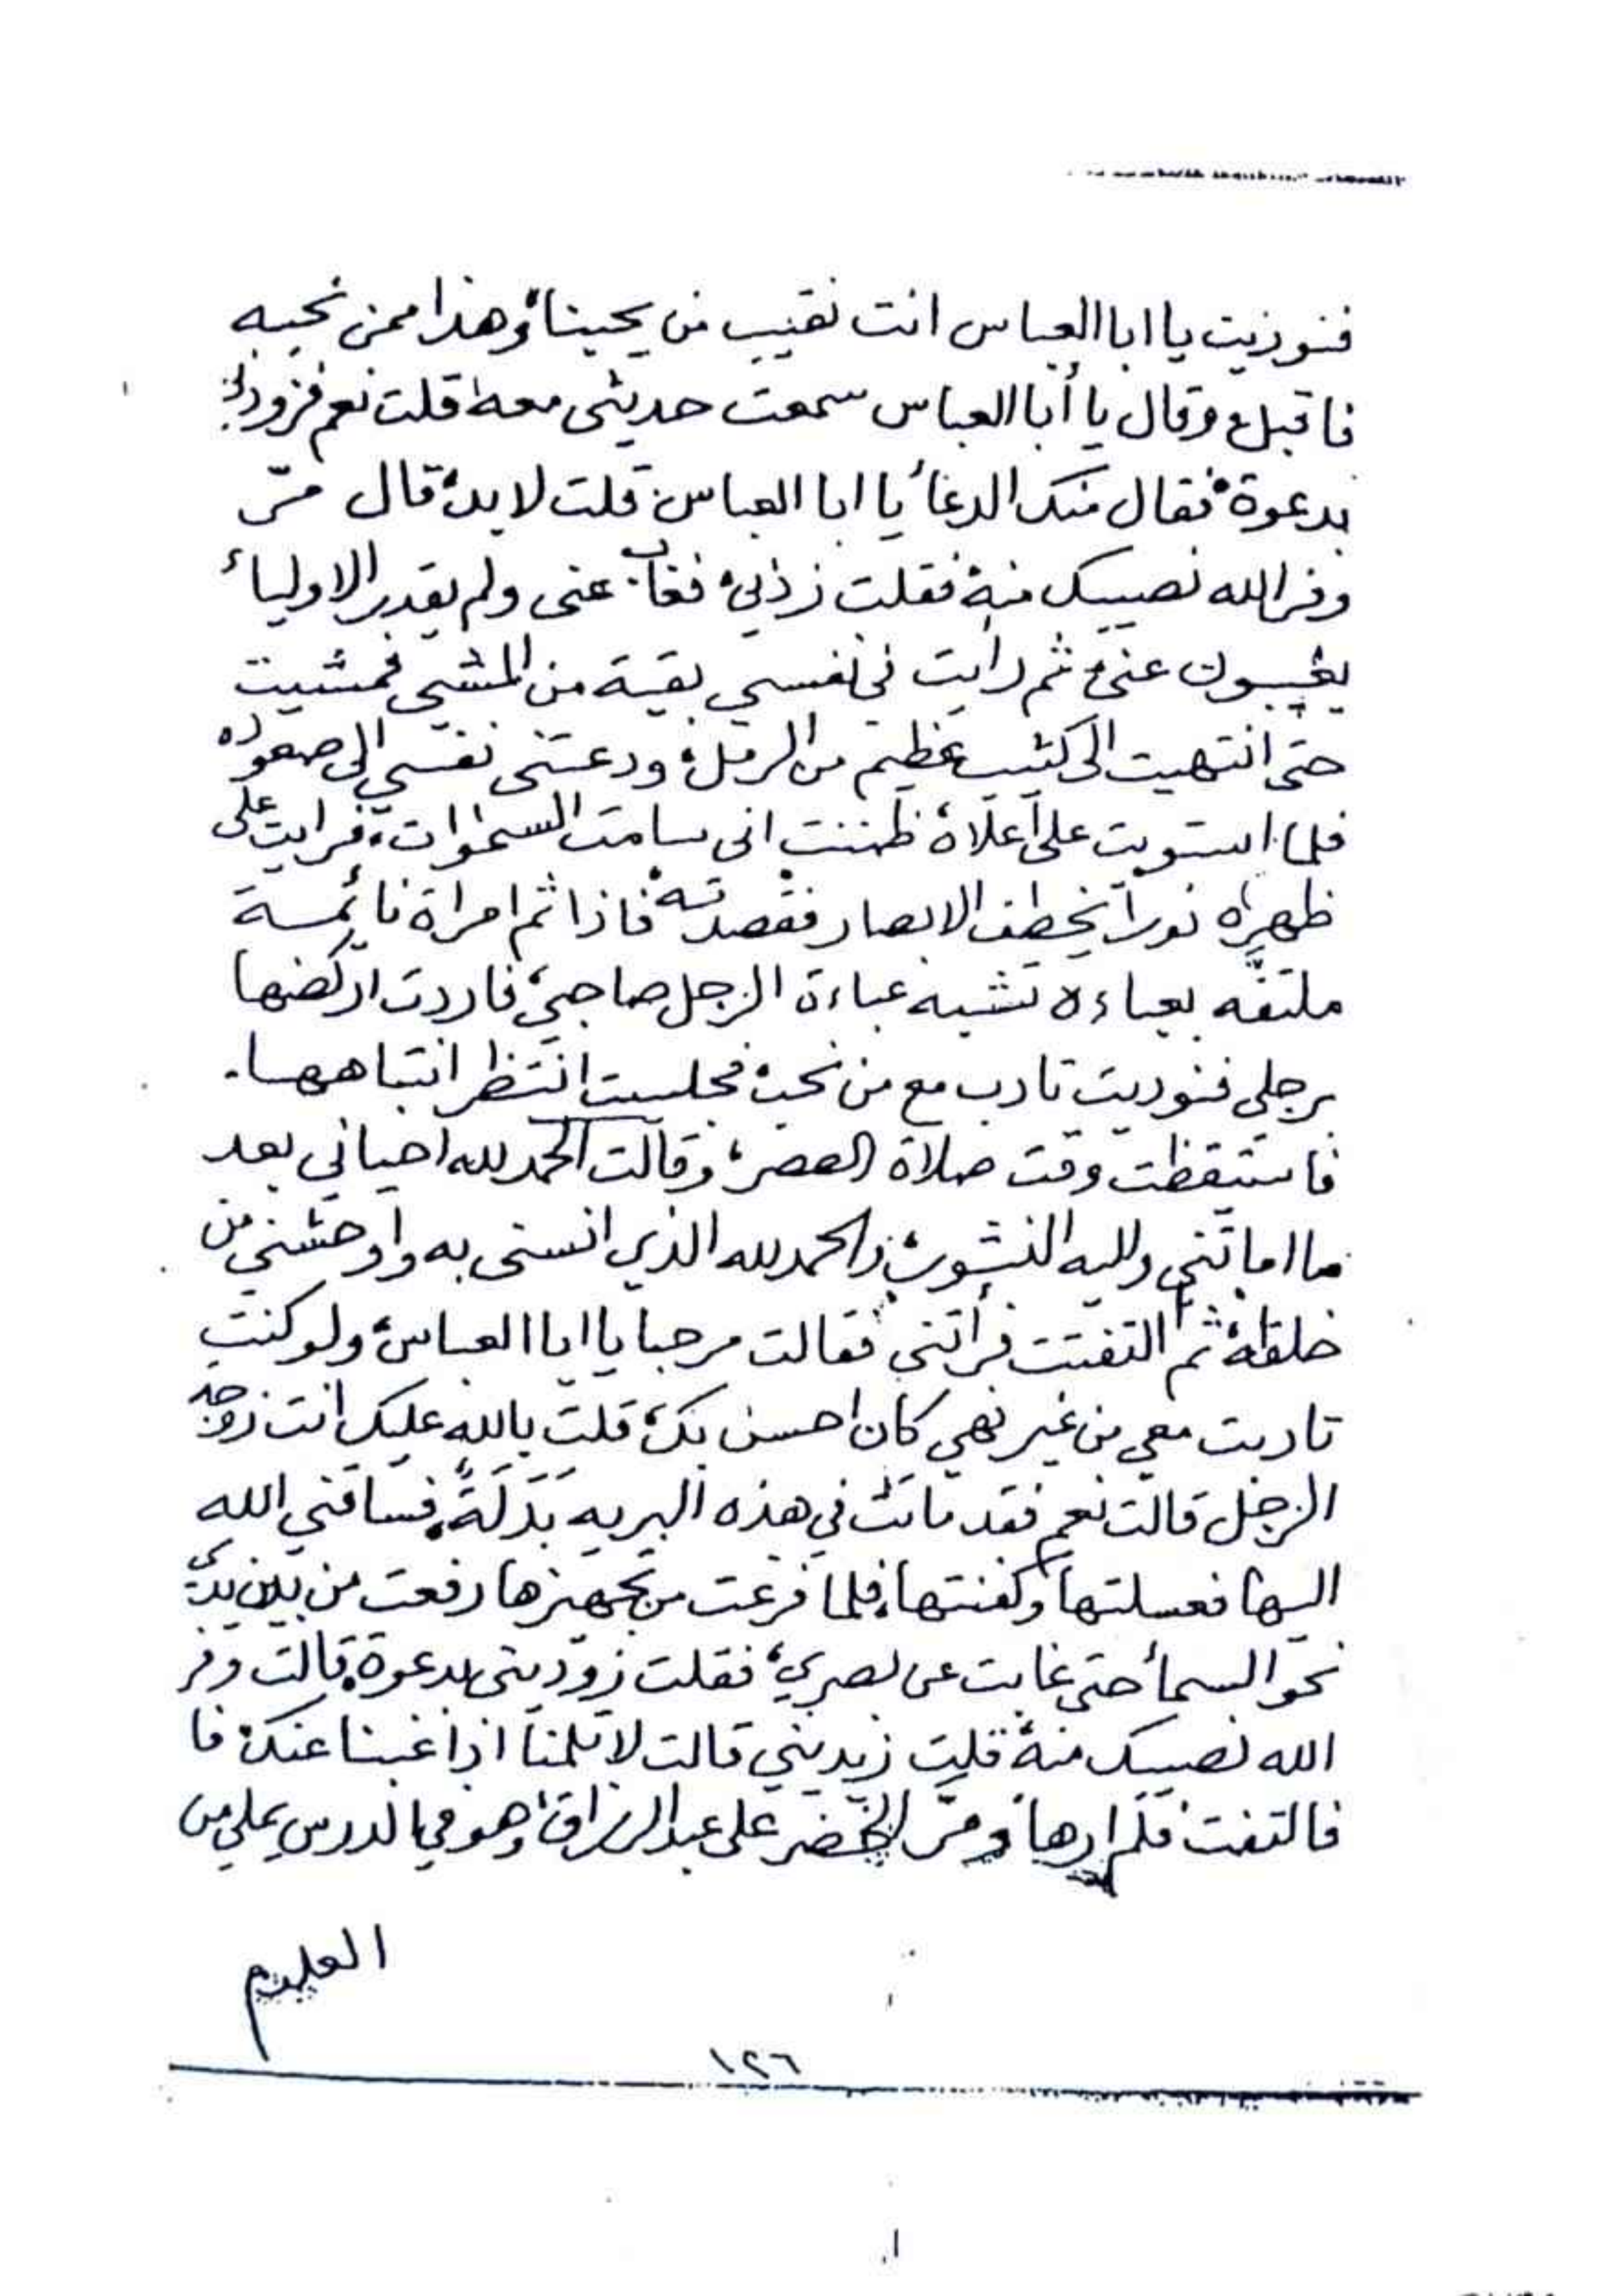 فنوديت يا ابا العباس انت نقيب من يحبنا وهذا ممن نحبه
فاقبل وقال يا أبا العباس سمعت حديثي معه قلت نعم فزودني
بدعوة فقال منك الدعأ يا ابا العباس قلت لا بد قال مر
وفر الله نصيبك منه فقلت زدني فغاب عني ولم يقدر الاولياء
يغيبون عني ثم رايت في نفسي بقية من المشي فمشيت
حتى انتهيت الى كثيب عظيم من الرمل ودعتني نفسي الى صعوده
فلما استويت على أعلاه ظننت اني سامت السموات فرايت على
ظهره نورا يخطف الابصار فقصدته فاذا ثم امراة نائمة
ملتفه بعباءه تشبه عباءة الرجل صاحبي فاردت اركضها
برجلي فنوديت تادب مع من نحب فجلست انتظر انتباهها.
فاستيقظت وقت صلاة العصر وقالت الحمد لله احياني بعد
ما اماتني واليه النشور والحمد لله الذي انسني به واوحشني من
خلقه ثم التفتت فرأتني فقالت مرحبا يا ابا العباس ولو كنت
تادبت معي من غير نهي كان احسن بك قلت بالله عليك انت زوجة
الرجل قالت نعم فقد ماتت في هذه البريه بَدَلَةً فساقني الله
اليها فغسلتها وكفنتها فلما فرغت من تجهيزها رفعت من بين يدي
نحو السمأ حتى غابت عن بصري فقلت زوديني بدعوة قالت وفر
الله نصيبك منه قلت زيديني قالت لا تلمنا اذا غبنا عنك فا
فالتفت فلم ارها ومر الخضر على عبد الرزاق وهو في الدرس يملي من
العلوم
١٢٦